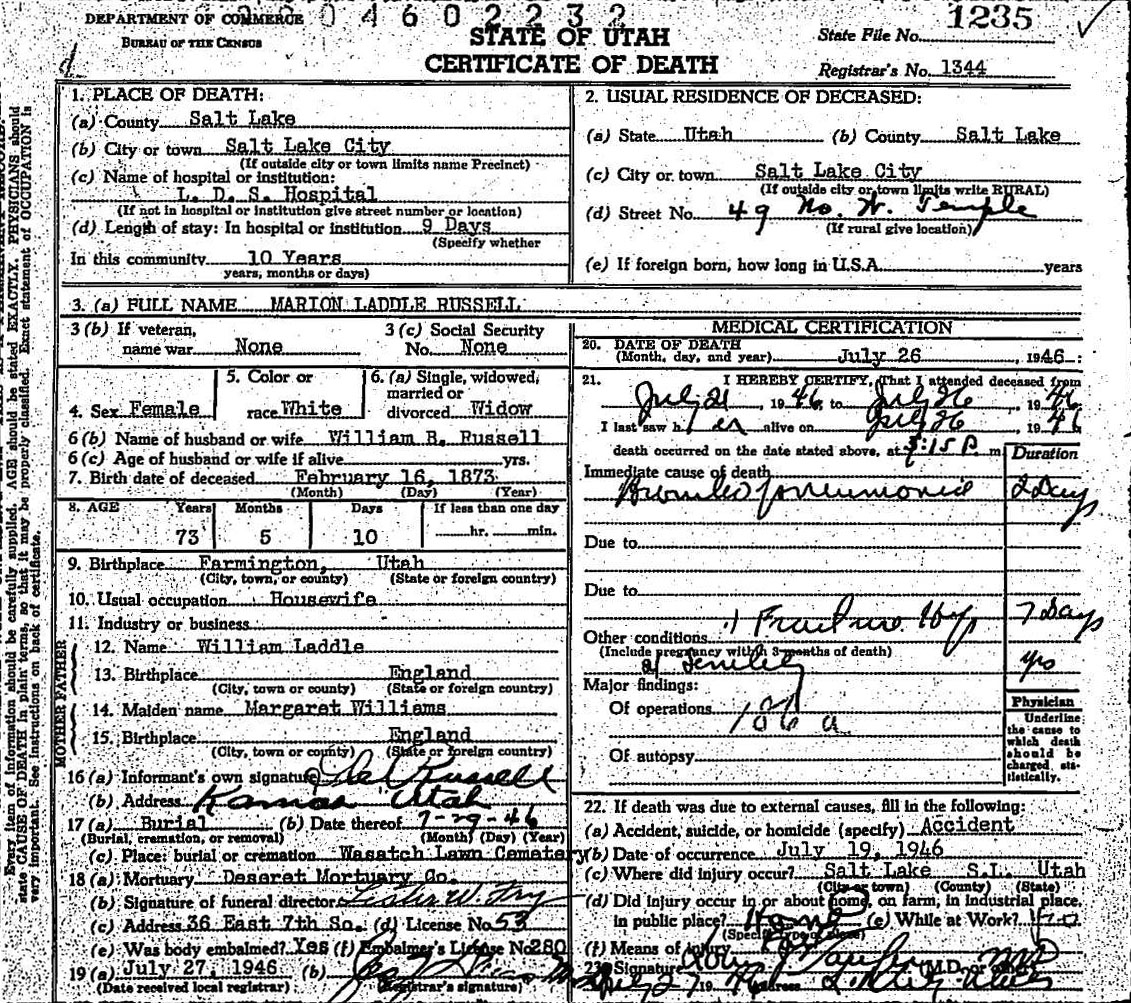 DEPARTMENT OF COMMERCE
BUREAU OF THE CENSUS
04602232
STATE OF UTAH
CERTIFICATE OF DEATH
State File No. 1235
Registrar's No. 1344
Every item of information should be carefully supplied. AGE should be stated EXACTLY. PHYSICIANS should
state CAUSE OF DEATH in plain terms, so that it may be properly classified. Exact statement of OCCUPATION is
very important. See instructions on back of certificate.
1. PLACE OF DEATH:
(a) County Salt Lake
(b) City or town Salt Lake City
(If outside city or town limits name Precinct)
(c) Name of hospital or institution:
L. D. S. Hospital
(If not in hospital or institution give street number or location)
(d) Length of stay: In hospital or institution 9 Days
(Specify whether
In this community 10 Years
years, months or days)
2. USUAL RESIDENCE OF DECEASED:
(a) State Utah (b) County Salt Lake
(c) City or town Salt Lake City
(If outside city or town limits write RURAL)
(d) Street No. 49 No. W. Temple
(If rural give location)
(e) If foreign born, how long in U.S.A. years
3. (a) FULL NAME MARION LADDLE RUSSELL
3 (b) If veteran, name war None
3 (c) Social Security No. None
4. Sex Female
5. Color or race White
6. (a) Single, widowed, married or divorced Widow
6 (b) Name of husband or wife William R. Russell
6 (c) Age of husband or wife if alive yrs.
7. Birth date of deceased February 16, 1873
(Month) (Day) (Year)
8. AGE Years Months Days If less than one day
73 5 10 hr. min.
9. Birthplace Farmington, Utah
(City, town, or county) (State or foreign country)
10. Usual occupation Housewife
11. Industry or business
FATHER
12. Name William Laddle
13. Birthplace England
(City, town or county) (State or foreign country)
MOTHER
14. Maiden name Margaret Williams
15. Birthplace England
(City, town or county) (State or foreign country)
16 (a) Informant's own signature Russell
(b) Address Kamas Utah
17 (a) Burial (b) Date thereof 7-29-46
(Burial, cremation, or removal) (Month) (Day) (Year)
(c) Place: burial or cremation Wasatch Lawn Cemetery
18 (a) Mortuary Deseret Mortuary Co.
(b) Signature of funeral director
(c) Address 36 East 7th So. (d) License No. 53
(e) Was body embalmed? Yes (f) Embalmer's License No 280
19 (a) July 27, 1946 (b)
(Date received local registrar) (Registrar's signature)
MEDICAL CERTIFICATION
20. DATE OF DEATH
(Month, day, and year) July 26, 1946
21. I HEREBY CERTIFY, That I attended deceased from
July 21, 1946, to July 26, 1946
I last saw her alive on July 26, 1946
death occurred on the date stated above, at :15 P. m.
Duration
Immediate cause of death
Broncho pneumonia 2 Days
Due to
Due to
Other conditions 1) Fracture Hip 7 Days
(Include pregnancy within 3 months of death)
2) Senility yrs
Major findings:
Of operations 106 a
Of autopsy
Physician
Underline the cause to which death should be charged statistically.
22. If death was due to external causes, fill in the following:
(a) Accident, suicide, or homicide (specify) Accident
(b) Date of occurrence July 19, 1946
(c) Where did injury occur? Salt Lake S.L. Utah
(City or town) (County) (State)
(d) Did injury occur in or about home, on farm, in industrial place,
in public place? Home (e) While at Work? No
(Specify type of place)
(f) Means of Injury
23. Signature (M.D. or other) MD
July 27 1946 Address